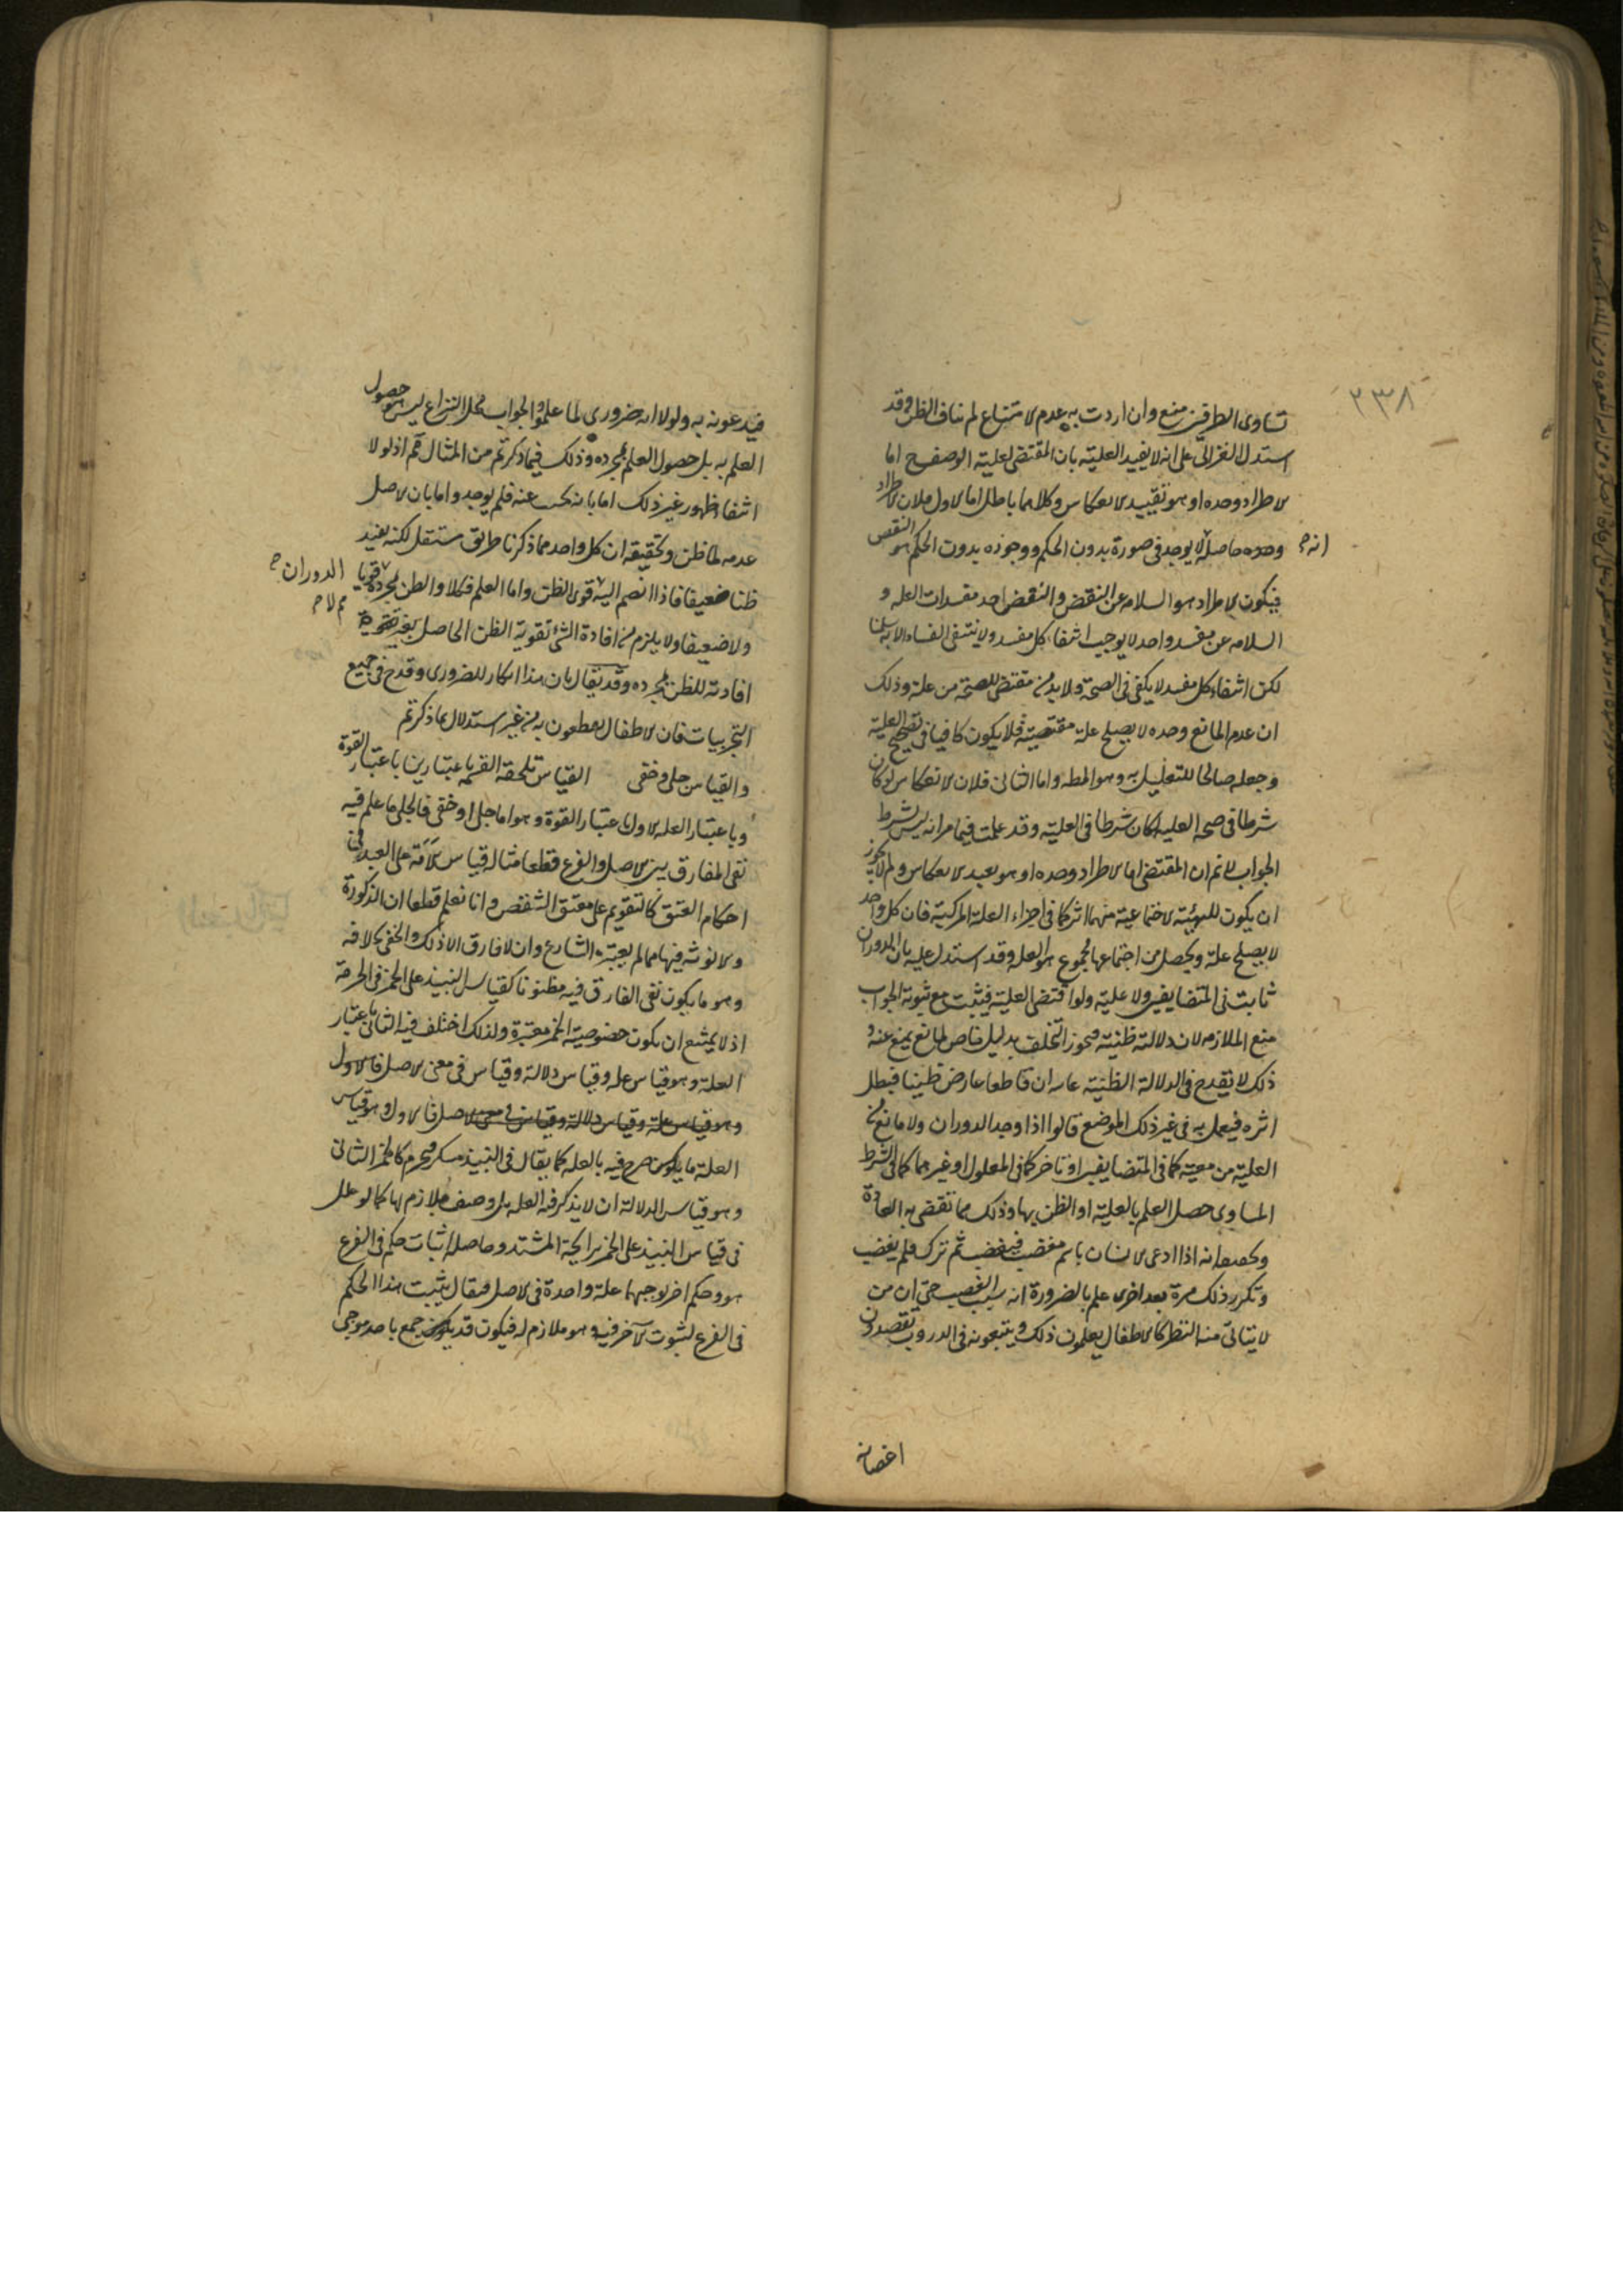 ٢٣٨
تساوى الطرفين منع وان اردت به عدم الامتناع لم يناف الظن وقد
استدل الغزالى على انه لا يفيد العلية بان المقتضى لعلية الوصف اما
الاطراد وحده او هو بقيد الانعكاس وكلاهما باطل اما الاول فلان الاطراد
وحده حاصله لا يوجد فى صورة بدون الحكم ووجوده بدون الحكم هو النقض
انه ح
فيكون الاطراد هو السلامه عن النقض والنقض احد مفسدات العله و
السلامه عن مفسد واحد لا يوجب انتفاء كل مفسد ولا ينتفى الفساد الا به سلمنا
لكن انتفاء كل مفسد لا يكفى فى الصحة ولا بد من مقتضى للصحة من علة وذلك
ان عدم المانع وحده لا يصلح علة مقتضية فلا يكون كافيا فى تصحيح العلية
وجعله صالحا للتعليل به وهو المط واما الثانى فلان الانعكاس لو كان
شرطا فى صحه العليه لكان شرطا فى العلية وقد علمت فيما مر انه ليس بشرط
الجواب لا نم ان المقتضى اما الاطراد وحده او هو بقيد الانعكاس ولم لا يجوز
ان يكون للهيئة الاجتماعية منهما اثر كما فى اجزاء العلة المركبة فان كل واحد
لا يصلح علة ويحصل من اجتماعها مجموع هو العله وقد استدل عليه بان الدوران
ثابت فى المتضايفين ولا علية ولو اقتضى العلية فيثبت مع ثبوته الجواب
منع الملازمه لان دلالته ظنية فيجوز التخلف بدليل خاص لمانع يمنع عنه و
ذلك لا يقدح فى الدلالة الظنية غايته ان قاطعا عارض ظنيا فبطل
اثره فيعمل به فى غير ذلك الموضع قالوا اذا وجد الدوران ولا مانع من
العلية من معية كما فى المتضايفين او تاخر كما فى المعلول او غيرهما كما فى الشرط
المساوى حصل العلم بالعلية او الظن بها وذلك مما تقضى به العادة
وتحقيقه انه اذا ادعى الانسان باسم مغضب فيغضب ثم ترك فلم يغضب
وتكرر ذلك مرة بعد اخرى علم بالضرورة انه سبب الغضب حتى ان من
لا يتاتى منه النظر كالاطفال يعلمون ذلك ويتبعونه فى الدروب يقصدون
اغضابه
فيدعونه به ولولا انه ضرورى لما علموا والجواب محل النزاع ليس هو حصول
العلم به بل حصول العلم بمجرده وذلك فيما ذكرتم من المثال مم اذ لولا
انتفاء ظهور غير ذلك اما بانه بحث عنه فلم يوجد واما بان الاصل
عدمه لما ظن وتحقيقه ان كل واحد مما ذكرنا طريق مستقل لكنه يفيد
ظنا ضعيفا فاذا انضم اليه قوى الظن واما العلم فكلا والظن بمجرده لا قويا
الدوران ح
ولا ضعيفا ولا يلزم من افادة الشئ تقوية الظن الحاصل بغيره
افادته للظن بمجرده وقد يقال بان هذا انكار للضرورى وقدح فى جميع
التجربيات فان الاطفال يقطعون به من غير استدلال بما ذكرتم
والقياس جلى وخفى القياس تلحقه القسمه باعتبارين باعتبار القوة
وباعتبار العله الاول باعتبار القوة وهو اما جلى او خفى فالجلى ما علم فيه
نفى الفارق بين الاصل والفرع قطعا مثاله قياس الامة على العبد فى
احكام العتق كالتقويم على معتق الشقص وانا نعلم قطعا ان الذكورة
والانوثه فيها مما لم يعتبره الشارع وان لا فارق الا ذلك والخفى بخلافه
وهو ما يكون نفى الفارق فيه مظنونا كقياس النبيذ على الخمر فى الحرمة
اذ لا يمتنع ان يكون خصوصية الخمر معتبرة ولذلك اختلف فيه الثانى باعتبار
العلة وهو قياس عله وقياس دلالة وقياس فى معنى الاصل فالاول
وهو قياس علة وقياس دلالة وقياس فى معنى الاصل فالاول وهو قياس
العلة ما يكون صرح فيه بالعله كما يقال فى النبيذ مسكر فيحرم كالخمر الثانى
وهو قياس الدلالة ان لا يذكر فيه العله بل وصف ملازم لها كما لو علل
فى قياس النبيذ على الخمر برائحة المشتد وحاصله اثبات حكم فى الفرع
هو وحكم اخر توجبهما علة واحدة فى الاصل فيقال يثبت هذا الحكم
فى الفرع لثبوت الآخر فيه وهو ملازم له فيكون قد جمع باحد موجبى